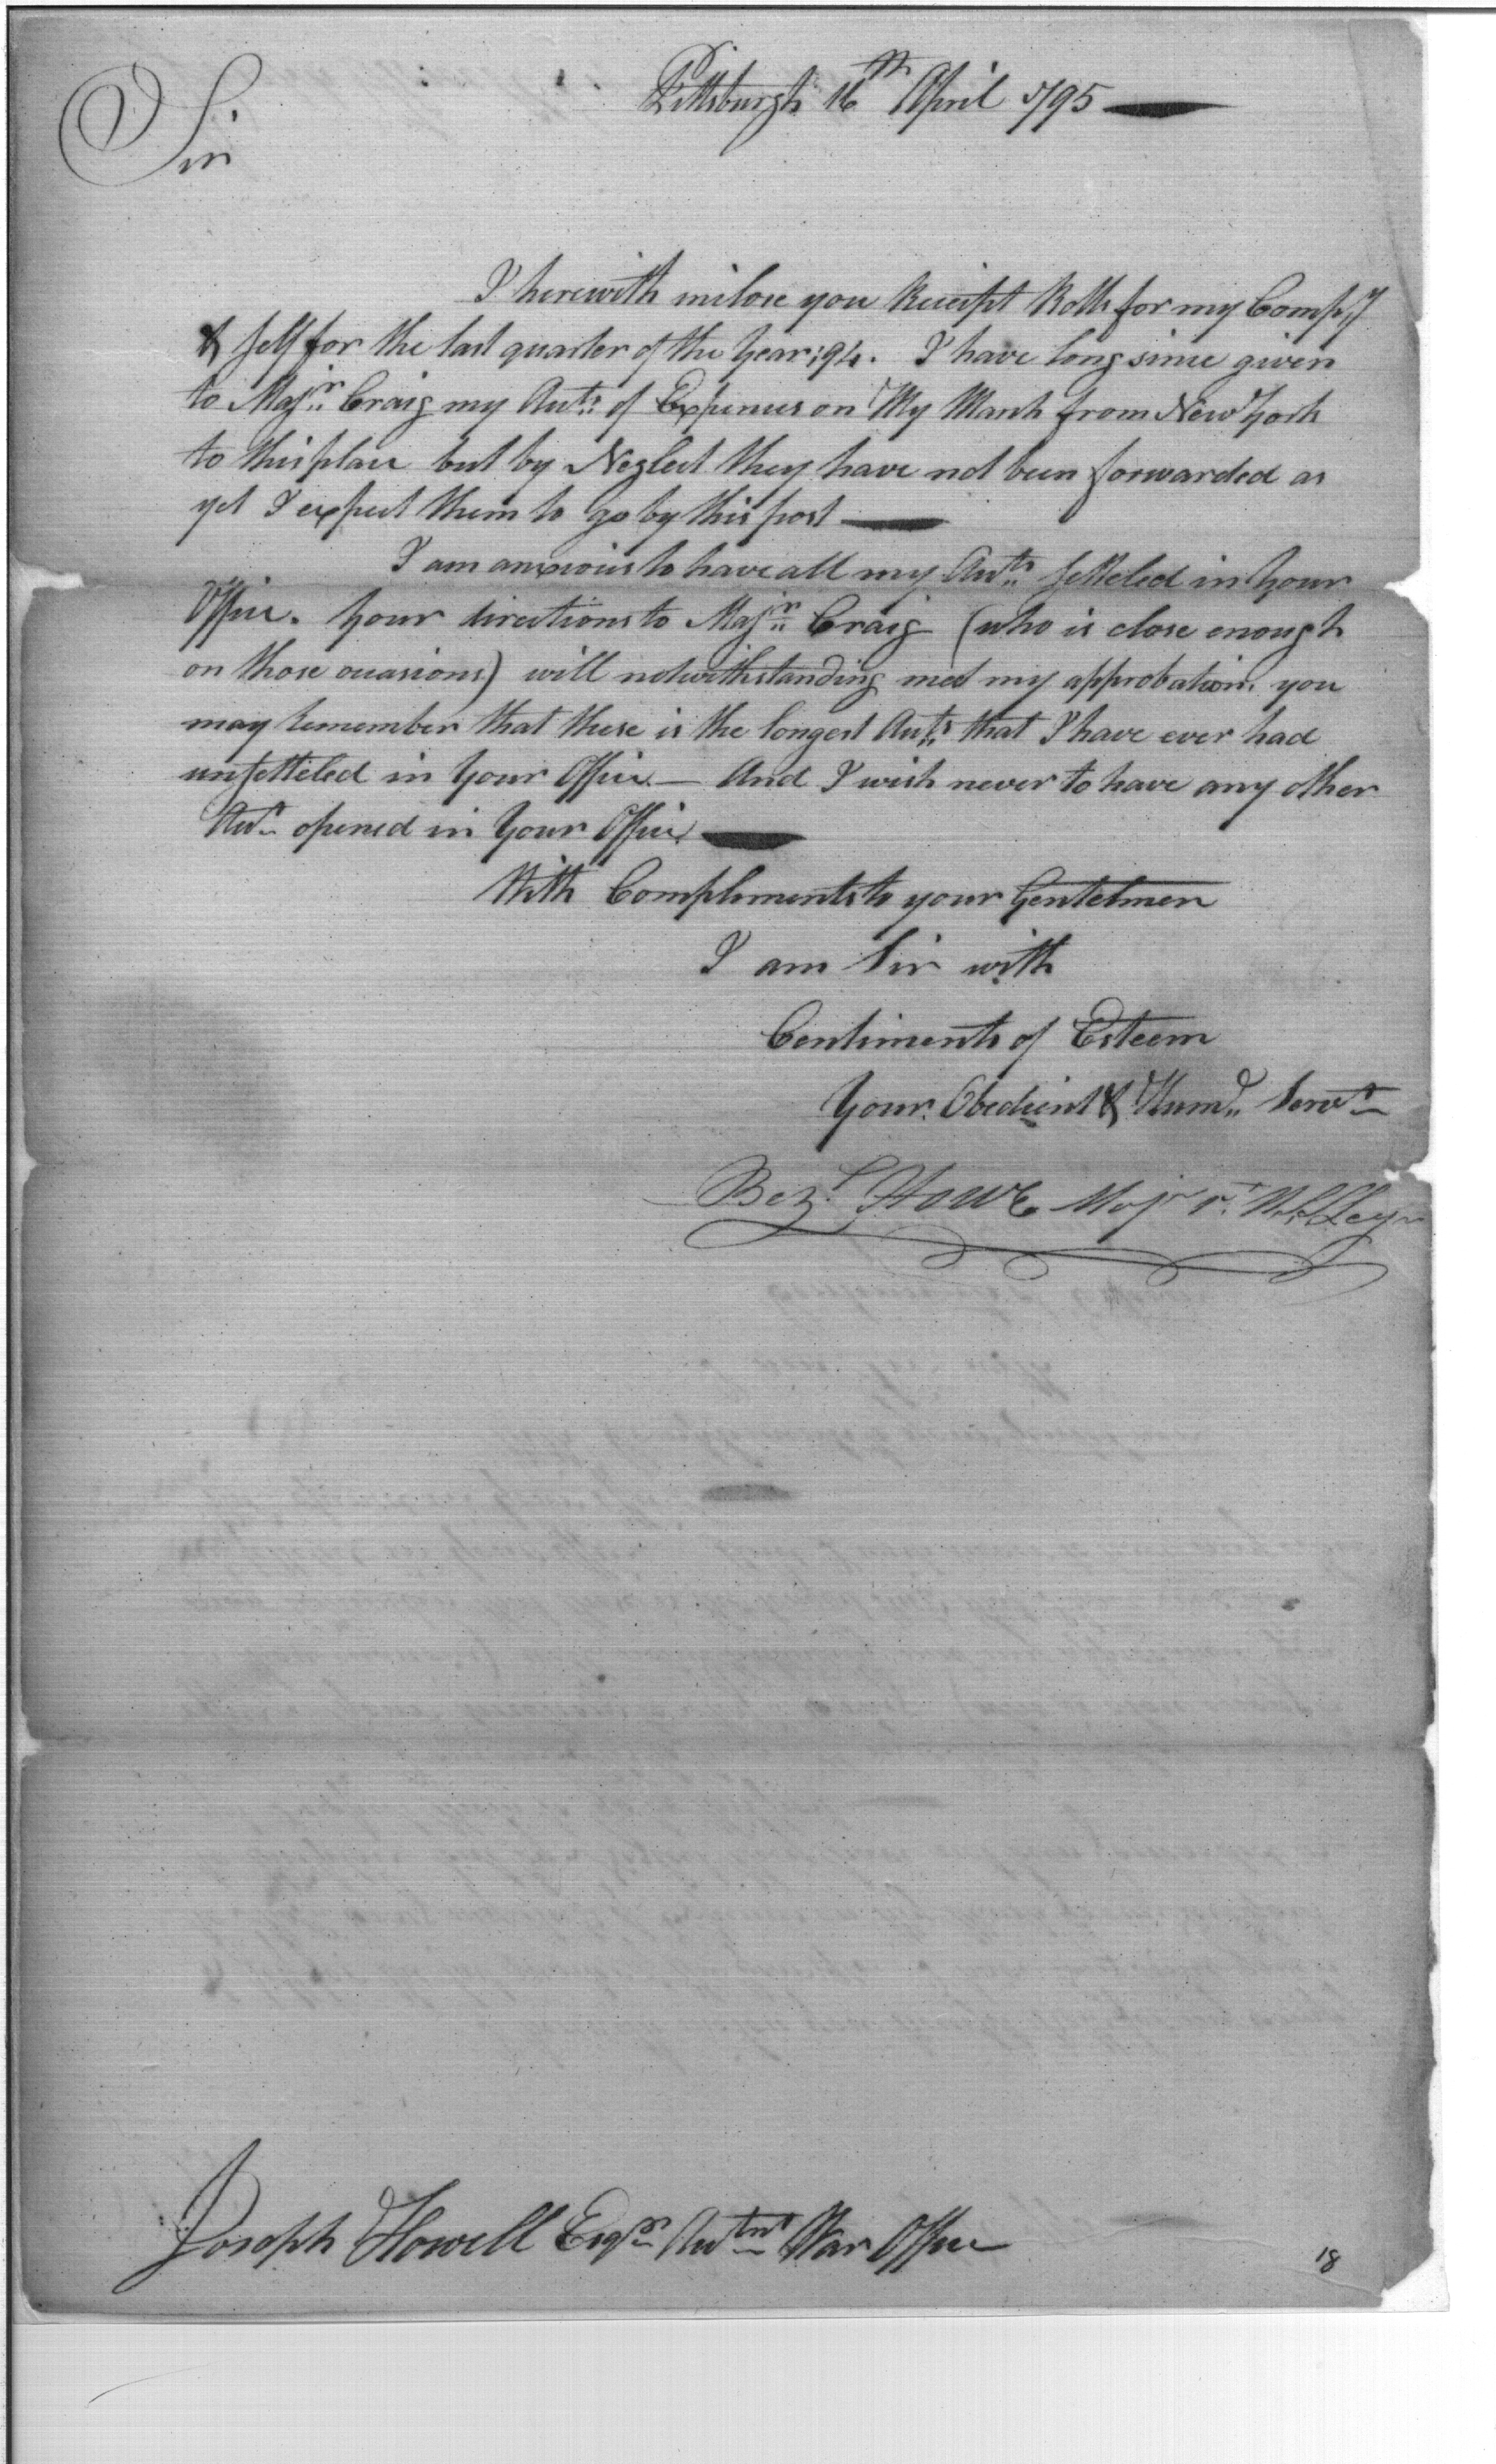 Pittsburgh 16th April 1795
Sir
I herewith inclose you Receipt Rolls for my Compy
& self for the last quarter of the Year 94. I have long since given
to Majr Craig my Acts of Expences on My March from New York
to this place but by Neglect they have not been forwarded as
yet I expect them to go by this post —
I am anxious to have all my Acts setteled in Your
Office. Your directions to Majr Craig (who is close enough
on those occasions) will notwithstanding meet my approbation. you
may remember that these is the longest Acts that I have ever had
unsetteled in Your Office — And I wish never to have any other
Act opened in Your Office —
With Compliments to your Gentelmen
I am Sir with
Centiments of Esteem
Your Obedient & Humb Servt
Bezl Howe Majr
Joseph Howell Esqr Actnt War Office
18